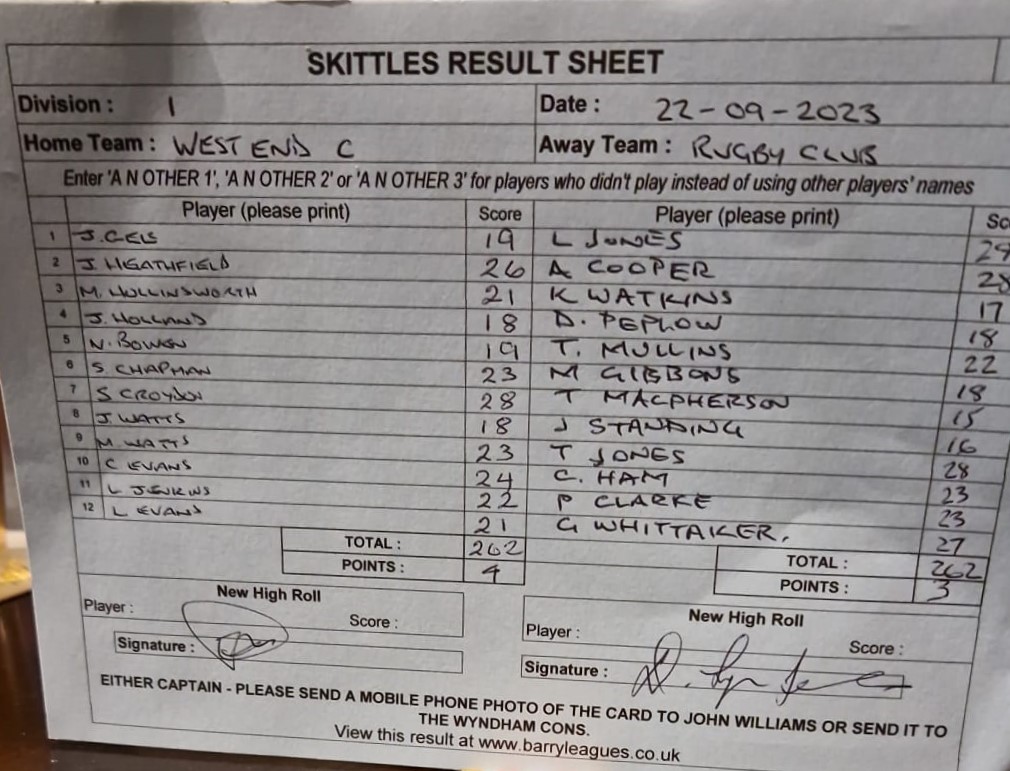 SKITTLES RESULT SHEET
Division : 1 Date : 22-09-2023
Home Team : WEST END C Away Team : RUGBY CLUB
Enter 'A N OTHER 1', 'A N OTHER 2' or 'A N OTHER 3' for players who didn't play instead of using other players' names
Player (please print) Score Player (please print) Sc
1 J. CELS 19 L JONES 29
2 J. HEATHFIELD 26 A COOPER 28
3 M. HOLLINSWORTH 21 K WATKINS 17
4 J. HOLLAND 18 D. PEPLOW 18
5 N. BOWEN 19 T. MULLINS 22
6 S CHAPMAN 23 M GIBBONS 18
7 S CROYDON 28 T MACPHERSON 15
8 J. WATTS 18 J STANDING 16
9 M. WATTS 23 T JONES 28
10 C EVANS 24 C. HAM 23
11 L JENKINS 22 P CLARKE 23
12 L EVANS 21 G WHITTAKER. 27
TOTAL : 262 TOTAL : 262
POINTS : 4 POINTS : 3
New High Roll New High Roll
Player : Score : Player : Score :
Signature : Signature :
EITHER CAPTAIN - PLEASE SEND A MOBILE PHONE PHOTO OF THE CARD TO JOHN WILLIAMS OR SEND IT TO
THE WYNDHAM CONS.
View this result at www.barryleagues.co.uk